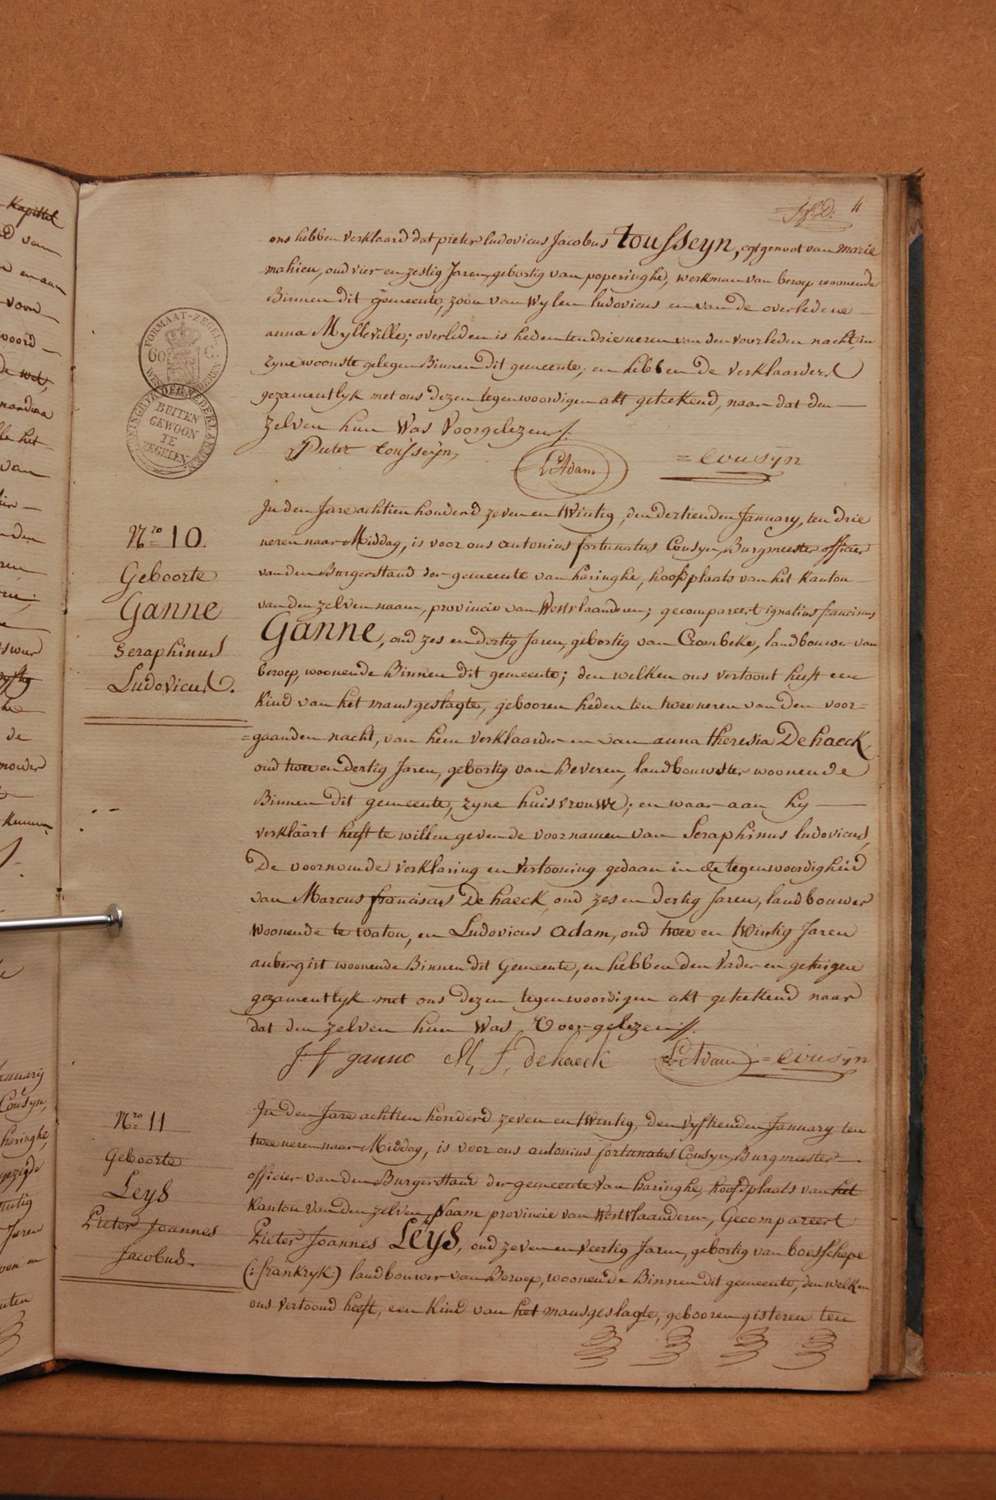 4
ons hebben verklaard dat pieter ludovicus Jacobus tousseyn, egtgenoot van marie
mahieu, oud vier en zestig Jaren, gebortig van poperinghe, werkman van beroep woonende
Binnen dit gemeente, zoon van Wylen ludovicus en van de overledene
anna Mylleville; overleden is heden ten drie uren van den voorleden nacht, in
zyne woonste gelegen Binnen dit gemeente; en hebben de verklaarders
gezamentlyk met ons dezen tegenwoordigen akt getekend, naar dat den
zelven hun Was Voorgelezen /.
Pieter tousseyn, L Adam = Cousyn
FORMAAT-ZEGEL
60 C
BUITEN
GEWOON
TE
ZEGELEN
DER NEDERLANDEN
Nro 10.
Geboorte
Ganne
Seraphinus
Ludovicus.
In den Jare achtien honderd zeven en twintig, den dertienden January, ten drie
uren naar Middag, is voor ons antonius fortunatus Cousyn, Burgmeester officier
van den Burgerstand der gemeente van haringhe, hoofplaats van het Kanton
van den zelven naam, provincie van Westvlaanderen; gecompareert ignatius franciscus
Ganne, oud zes en dertig Jaren, gebortig van Crombeke, landbouwer van
beroep, woonende Binnen dit gemeente; den welken ons vertoont heeft een
Kind van het mansgeslagte, gebooren heden ten twee uren van den voor-
=gaanden nacht, van hem verklaarder en van anna theresia Dehaeck,
oud twee en dertig Jaren, gebortig van Beveren, landbouwster woonende
Binnen dit gemeente, zyne huisvrouwe; en waar aan hy
verklaart heeft te willen geven de voornamen van Seraphinus ludovicus,
De voornoemde verklaring en vertooning gedaan in de tegenwoordigheid
van Marcus franciscus Dehaeck, oud zes en dertig Jaren, landbouwer
woonende te waton, en Ludovicus Adam, oud twee en twintig Jaren
aubergist woonende Binnen dit Gemeente, en hebben den Vader en getuigen
gezamentlyk met ons dezen tegenwoordigen akt getekend naar
dat den zelven hun Was, Voorgelezen //.
J f ganne M, f, dehaeck L Adam = Cousyn
Nro 11
Geboorte
Leys
Pieter Joannes
Jacobus.
In den Jare achtien honderd zeven en twintig, den vyftienden January ten
twee uren naar Middag, is voor ons antonius fortunatus Cousyn, Burgmeester
officier van den Burgerstand der gemeente van haringhe, hoofdplaats van het
Kanton van den zelven Naam provincie van Westvlaanderen, Gecompareert
Pieter Joannes Leys, oud zeven en veertig Jaren, gebortig van boesschepe
(: frankryk) landbouwer van Beroep, woonende Binnen dit gemeente, den welken
ons vertoond heeft, een Kind van het mansgeslagte, gebooren gisteren ten